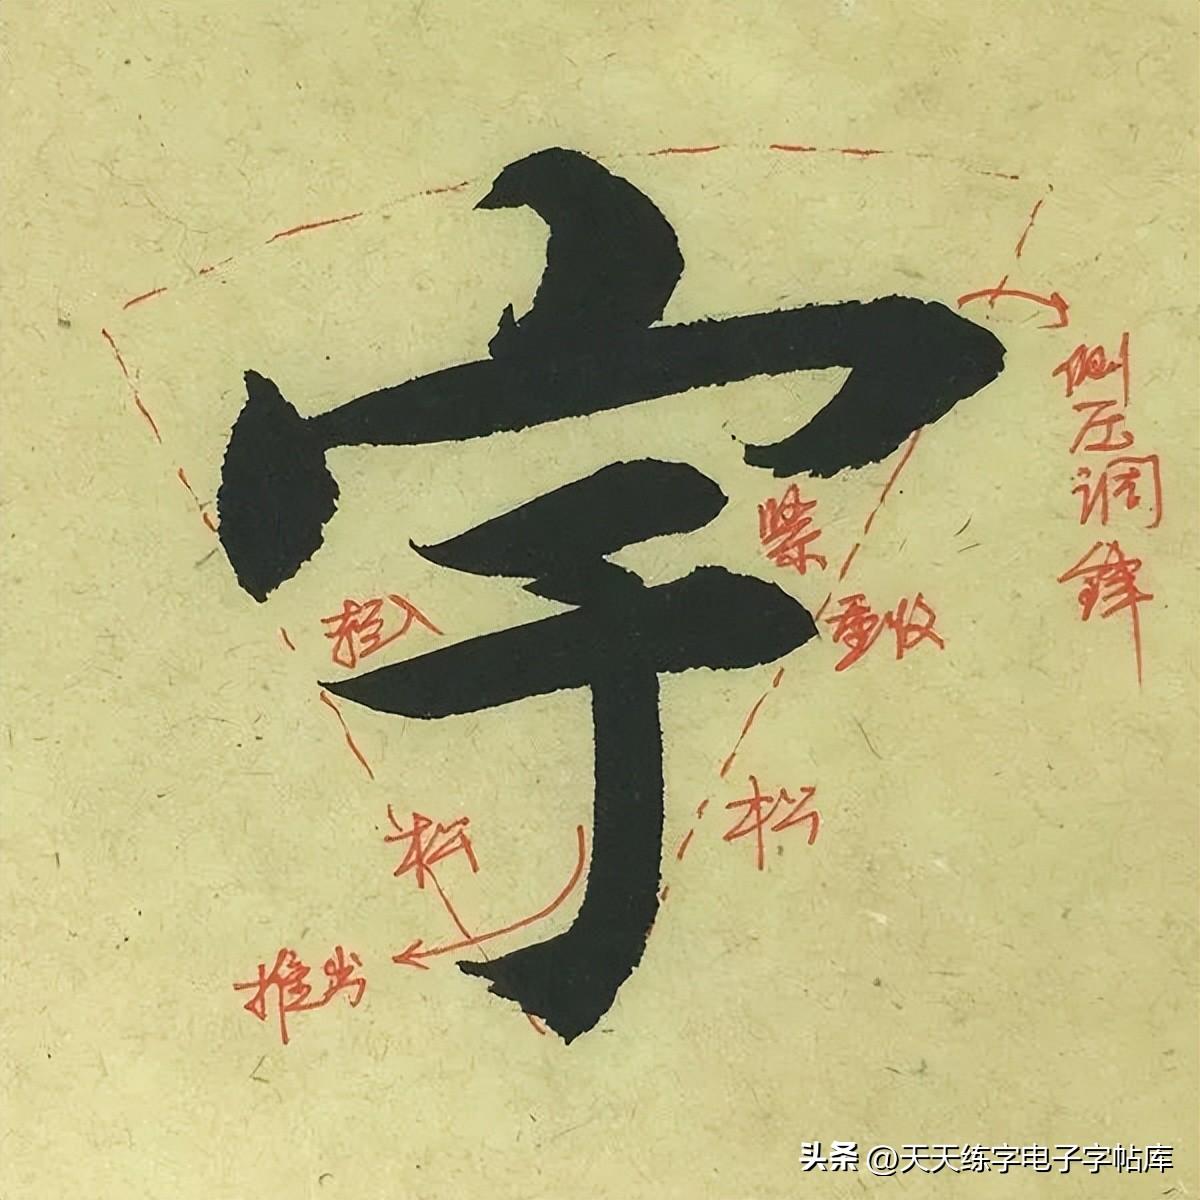 宇
侧压调锋
紧
轻入
重收
松
松
推出
头条 @天天练字电子字帖库